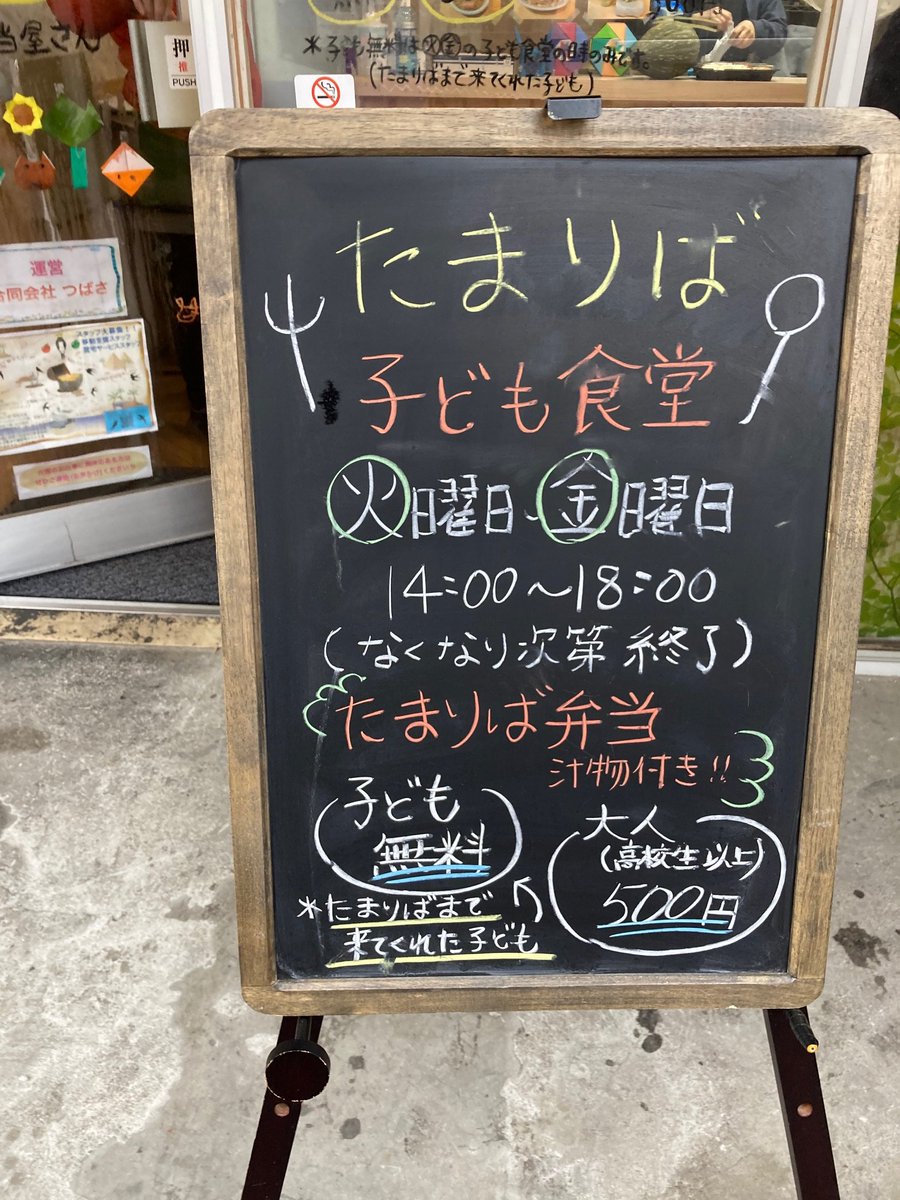 当屋さん
押
推
PUSH
*子ども無料は火金の子ども食堂の時のみです。
(たまりばまで来てくれた子ども)
運営
合同会社 つばさ
スタッフ大募集!
移動支援スタッフ
居宅サービススタッフ
たまりば
子ども食堂
火曜日・金曜日
14:00〜18:00
(なくなり次第 終了)
たまりば弁当
汁物付き!!
子ども
無料
*たまりばまで
来てくれた子ども
大人
(高校生以上)
500円